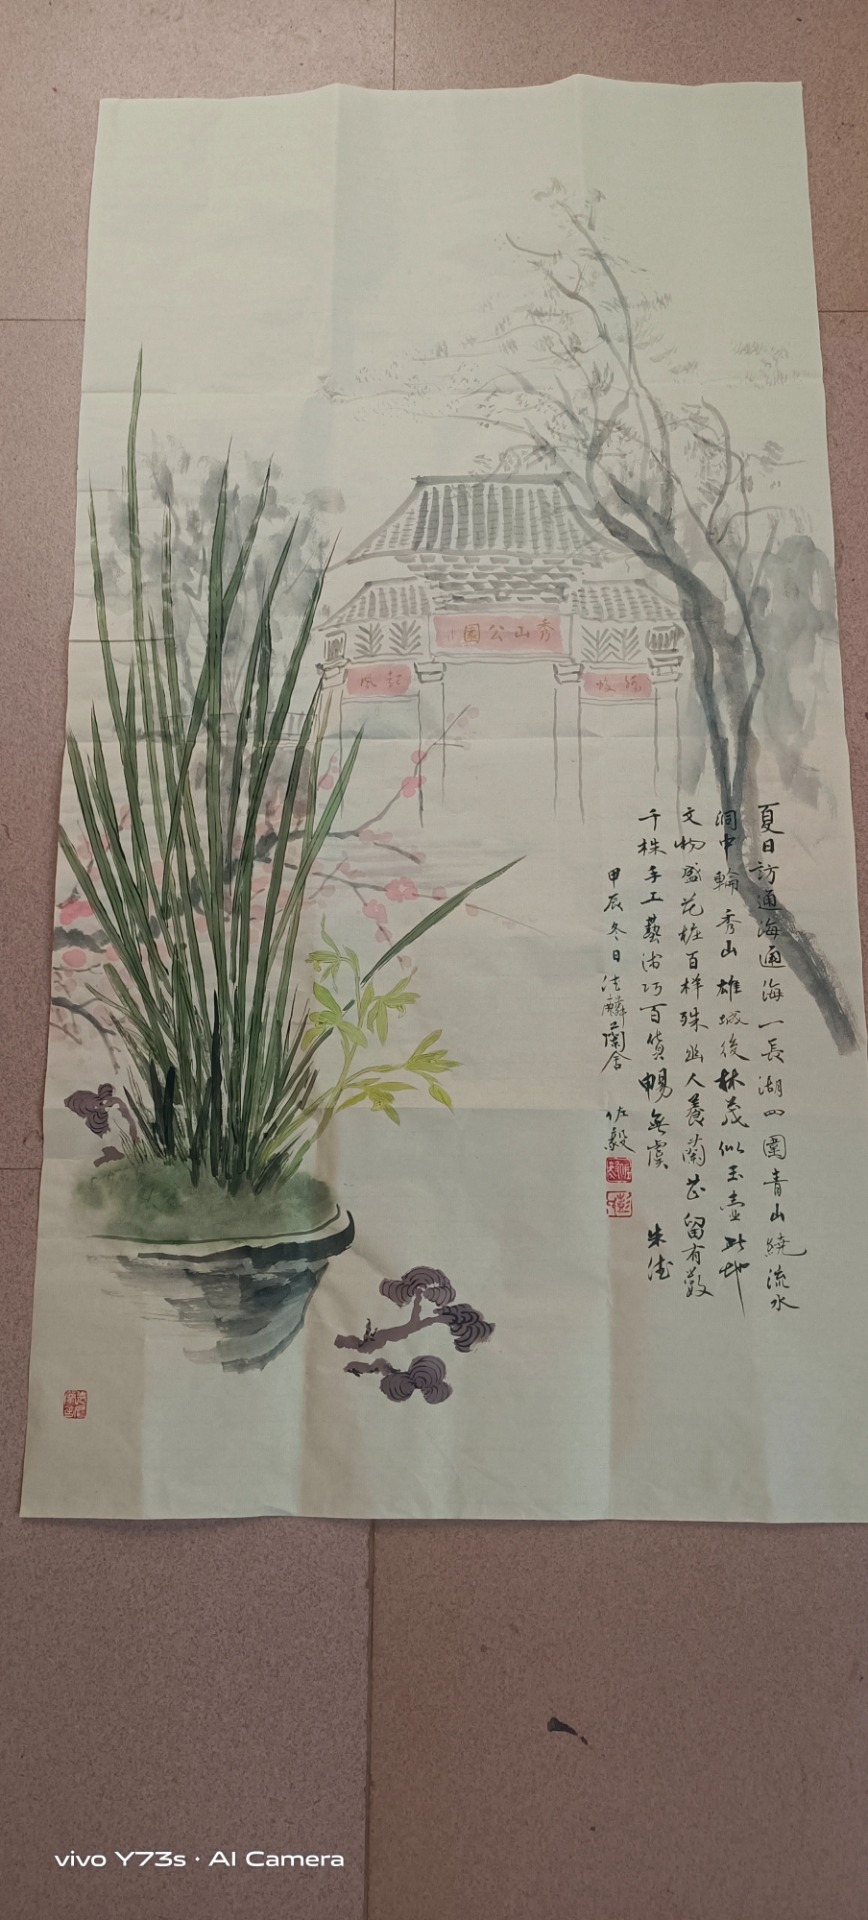 秀山公園
夏日訪通海通海一長湖四圍青山繞流水
洞中輪秀山雄城後林茂似玉壺此地
文物盛花百样殊幽人養蘭芷留有数
千株手工藝術巧百貨暢無虞 朱德
甲辰冬日法麟蘭舍 佐毅
vivo Y73s · AI Camera